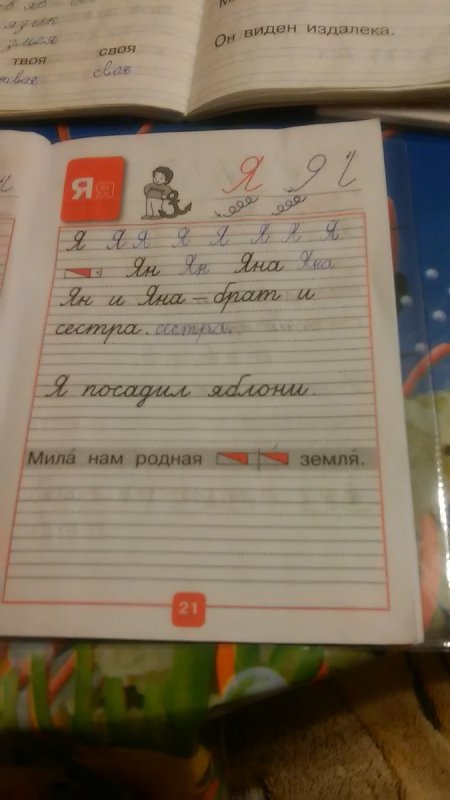 язык
твоя своя
Он виден издалека.
Я я
Я
Я Я Я Я Я Я Я Я
Ян Ян Яна Яна
Ян и Яна – брат и
сестра. сестра.
Я посадил яблони.
Мила́ нам родная земля́.
21